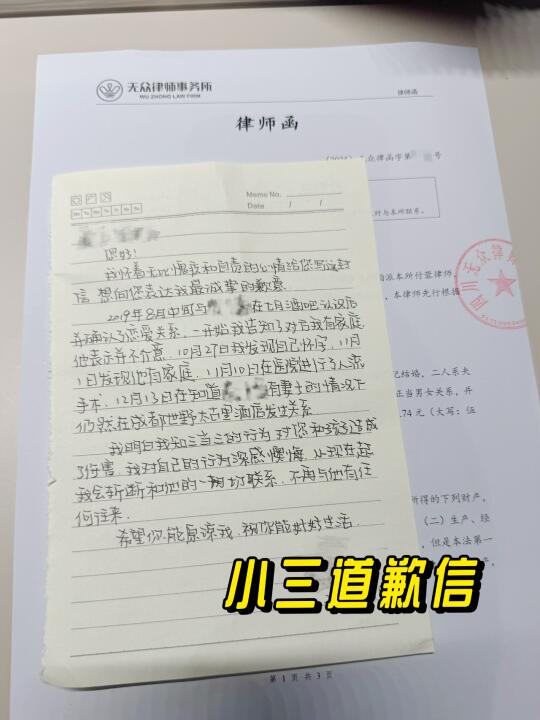 无众律师事务所
WU ZHONG LAW FIRM
律师函
律师函
众律函字第
号
与本所联系。
指派本所付萱律师,
,本律师先行根据
记结婚,二人系夫
正当男女关系,并
.74 元(大写:伍
所得的下列财产,
(二)生产、经
,但是本法第一
第 1 页 共 3 页
Memo No.
Date / /
Mo Tu We Th Fr Sa Su
您好!
我怀着无比愧疚和自责的心情给您写这封
信 想向您表达我最诚挚的歉意
2019年8月中旬与
在七月酒吧认识后
并确认了恋爱关系,一开始我告知了对方我有家庭
他表示并不介意,10月27日我发现自己怀孕,11月
1日发现他有家庭,11月10日在医院进行了人流
手术,12月13日在知道
有妻士的情况下
仍然在成都世野太古里酒店发生关系
我明白我知三当三的行为 对您和孩子造成
了伤害,我对自己的行为深感懊悔,从现在起
我会斩断和他的一切联系,不再与他有任
何往来.
希望你能原谅我,祝你能好好生活.
小三道歉信